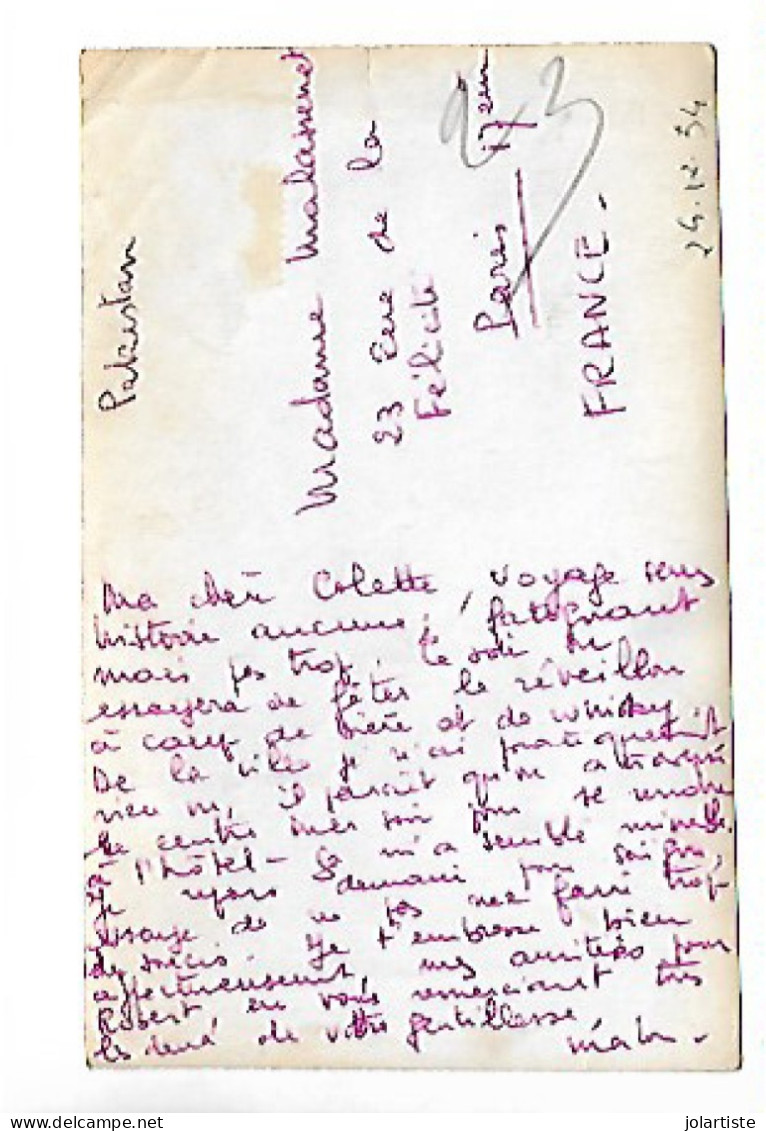 Pakistan
Madame Malassenet
23 Rue de la
Félicité
Paris 17em
FRANCE.
23
24.12.54
Ma cher Colette, voyage sans
histoire aucune, fatiguant
mais pas trop. Ce soir on
essayera de fêter le réveillon
à coup de bière et de whisky
De la ville je n'ai pratiquement
rien vu, il parait qu'on a
le centre mais pour se rendre
à l'hôtel - m'a semblé
Je repars demain pour Saïgon,
de ne pas me faire trop
de soucis. Je t'embrasse bien
affectueusement, mes amitiés pour
Robert, en vous remerciant très
les deux de votre gentillesse
delcampe.net
jolartiste